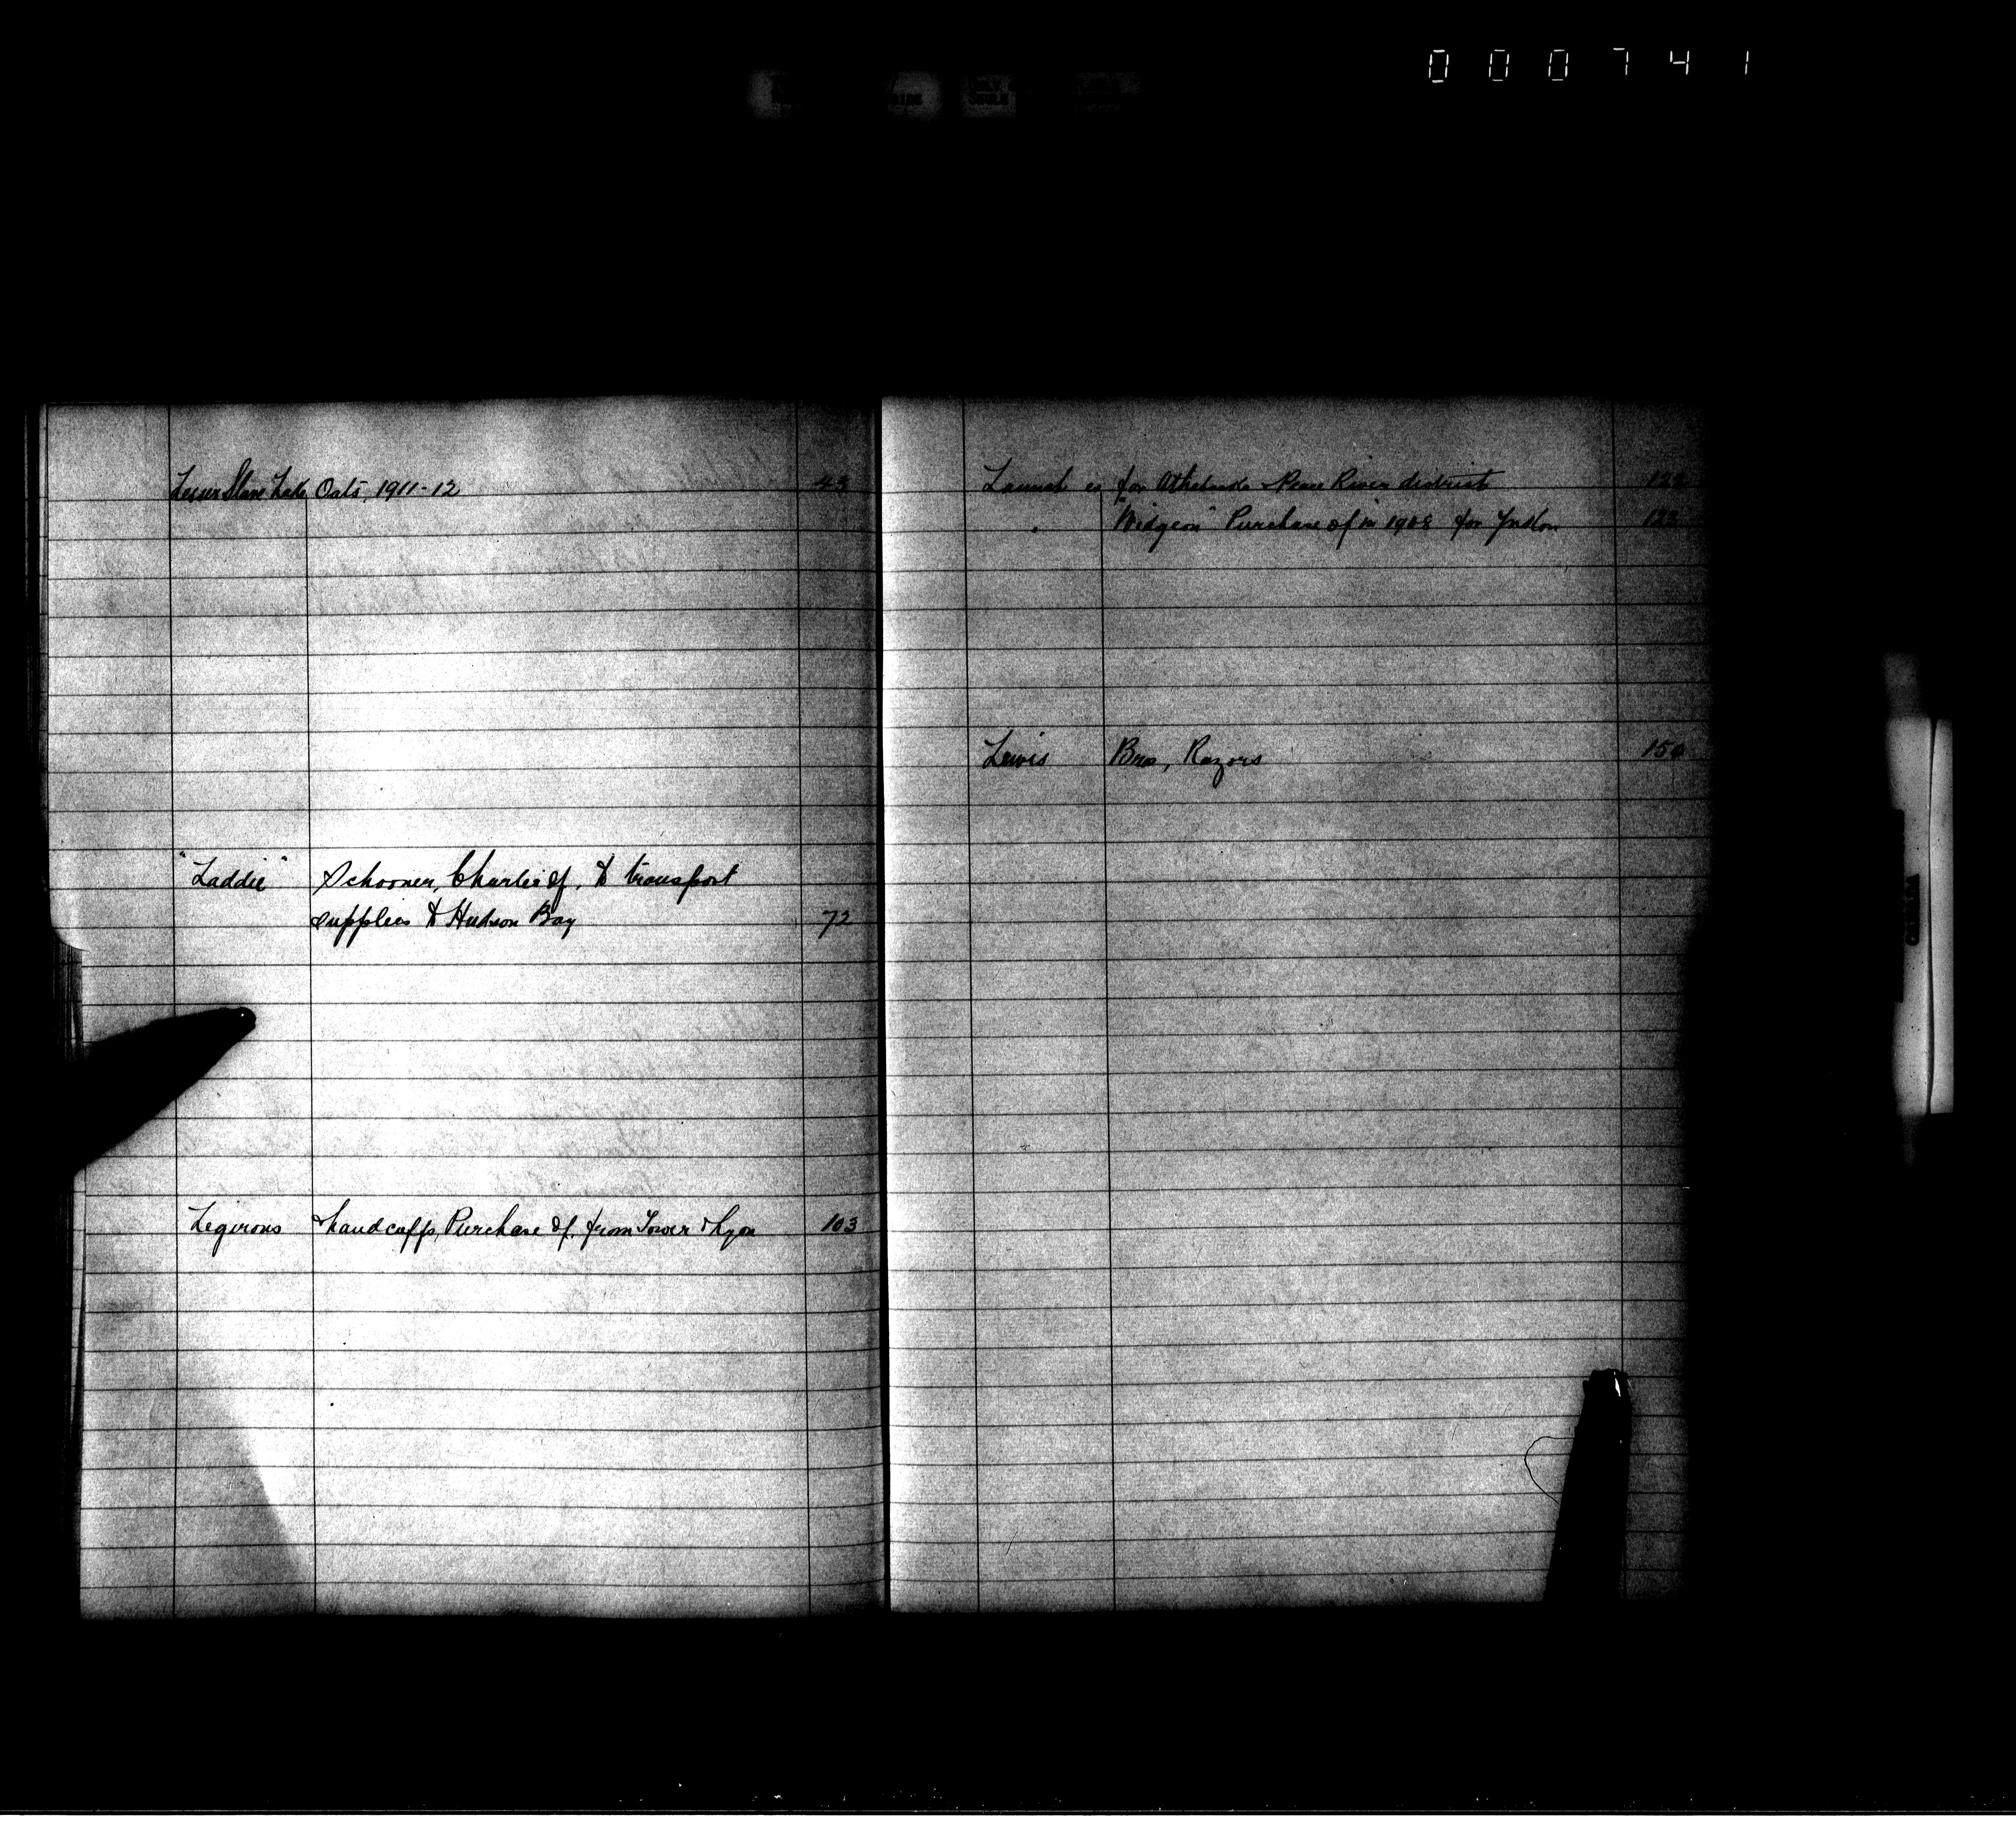 000741
Lesser Slave Lake Oats, 1911-12 43
"Laddie" Schooner, Charter of, to transport
supplies to Hudson Bay 72
Legirons & handcuffs, Purchase of, from Tower & Lyon 103
Launch es for Athabaska & Peace River district
" "Widgeon" Purchase of in 1908 for Yukon
Lewis Bros, Razors